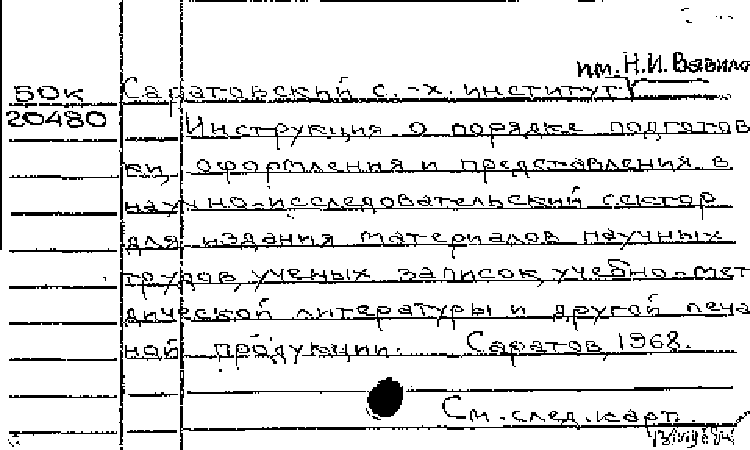 им. Н.И. Вавило
БОК Саратовский с.-х. институт
20480 Инструкция о порядке подготов
ки, оформления и представления в
научно-исследовательский сектор
для издания материалов научных
трудов, ученых записок, учебно-мет
дической литературы и другой печа
ной продукции. Саратов, 1968.
См. след. карт.